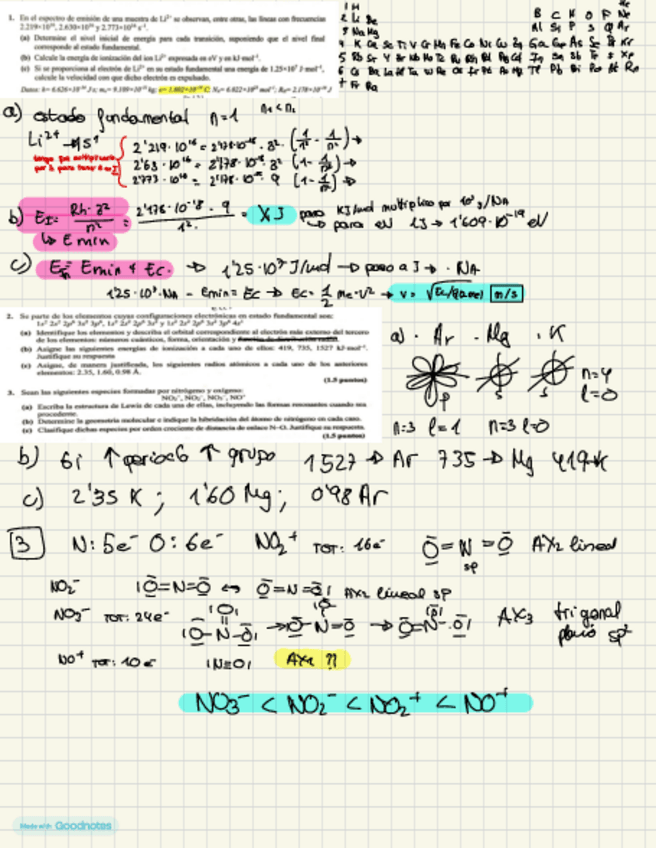 1. En el espectro de emisión de una muestra de Li²⁺ se observan, entre otras, las líneas con frecuencias
2.219×10¹⁶, 2.630×10¹⁶ y 2.773×10¹⁶ s⁻¹.
(a) Determine el nivel inicial de energía para cada transición, suponiendo que el nivel final
corresponde al estado fundamental.
(b) Calcule la energía de ionización del ion Li²⁺ expresada en eV y en kJ·mol⁻¹.
(c) Si se proporciona al electrón de Li²⁺ en su estado fundamental una energía de 1.25×10⁷ J·mol⁻¹,
calcule la velocidad con que dicho electrón es expulsado.
H
Li Be
3 Na Mg
B C N O F Ne
Al Si P S Cl Ar
a) estado fundamental n=1 n₁<n₂
Li²⁺ → 1s¹
2'219·10¹⁶ = 2'178·10⁻¹⁸·3²·(1/1² - 1/n²) →
2'63·10¹⁶ = 2'178·10⁻¹⁸·3² (1 - 1/n²) →
2'773·10¹⁶ = 2'178·10⁻¹⁸·9 (1 - 1/n²) →
b) EI = Rh·z²/n² = 2'178·10⁻¹⁸·9/1² = X J para KJ/mol multiplico por 10³/NA
↳ Emin
↳ para eV 1J → 1'609·10⁻¹⁹ eV
c) = Emin + Ec. → 1'25·10⁷ J/mol → paso a J → · NA
1'25·10⁷·NA - Emin = Ec → Ec = 1/2 me·v² → v = m/s
2. Se parte de los elementos cuyas configuraciones electrónicas en estado fundamental son:
1s² 2s² 2p⁶ 3s² 3p⁶, 1s² 2s² 2p⁶ 3s² y 1s² 2s² 2p⁶ 3s² 3p⁶ 4s¹
(a) Identifique los elementos y describa el orbital correspondiente al electrón más externo del tercero
de los elementos: números cuánticos, forma, orientación y función de distribución radial.
(b) Asigne las siguientes energías de ionización a cada uno de ellos: 419, 735, 1527 kJ·mol⁻¹.
Justifique su respuesta
(c) Asigne, de manera justificada, los siguientes radios atómicos a cada uno de los anteriores
elementos: 2.35, 1.60, 0.98 Å.
(1.5 puntos)
a) · Ar · Mg · K
p s s n=4
l=0
n=3 l=1 n=3 l=0
3. Sean las siguientes especies formadas por nitrógeno y oxígeno:
NO₂⁺, NO₂⁻, NO₃⁻, NO⁺
(a) Escriba la estructura de Lewis de cada una de ellas, incluyendo las formas resonantes cuando sea
procedente.
(b) Determine la geometría molecular e indique la hibridación del átomo de nitrógeno en cada caso.
(c) Clasifique dichas especies por orden creciente de distancia de enlace N–O. Justifique su respuesta.
(1.5 puntos)
b) Ei ↑ periodo ↑ grupo 1527 → Ar 735 → Mg 419 → K
c) 2'35 K ; 1'60 Mg ; 0'98 Ar
3 N: 5e⁻ O: 6e⁻ NO₂⁺ TOT: 16e⁻ O=N=O AX₂ lineal
sp
NO₂⁻ |O=N=O ↔ O=N=O| AX₂ lineal sp
NO₃⁻ TOT: 24e⁻ |O-N-O| → O-N=O → O=N-O| AX₃ trigonal
plano sp²
NO⁺ TOT: 10e⁻ |N≡O| AX₁ ??
NO₃⁻ < NO₂⁻ < NO₂⁺ < NO⁺
Made with Goodnotes